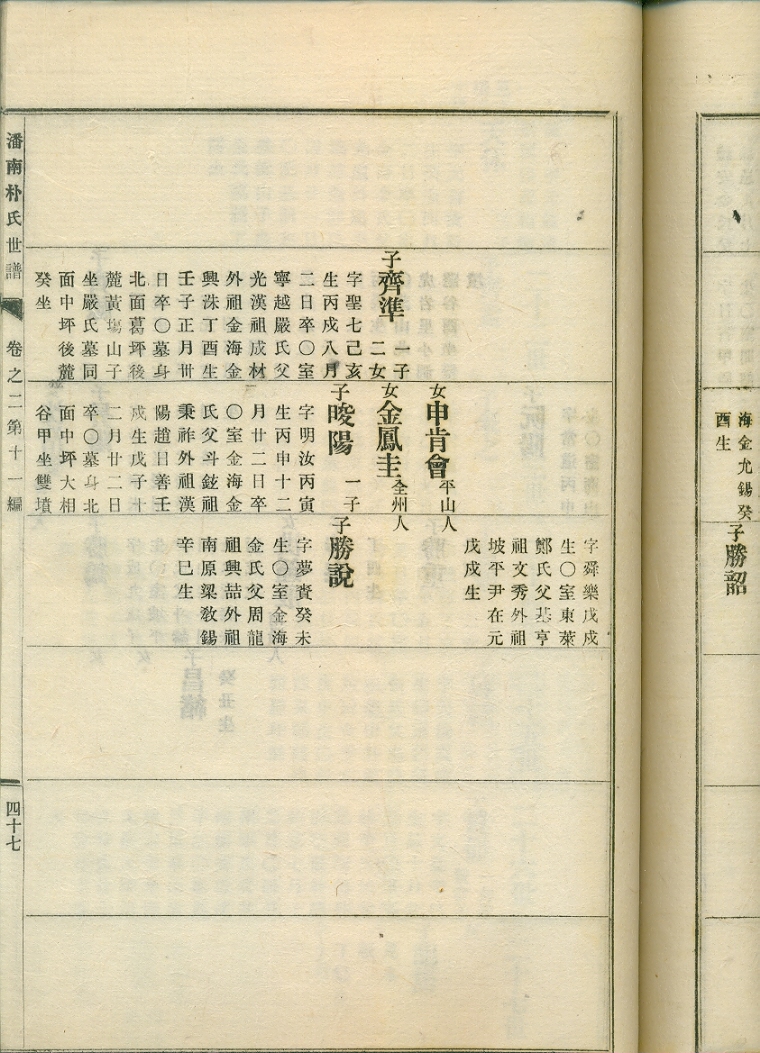 海金尤錫癸
酉生
子勝韶
子齊準
一子
二女
字聖七己亥
生丙戌八月
二日卒〇室
寧越嚴氏父
光漢祖成材
外祖金海金
興洙丁酉生
壬子正月卄
日卒〇墓身
北面葛坪後
麓黃塲山子
坐嚴氏墓同
面中坪後麓
癸坐
女申肯會平山人
女金鳳圭全州人
子晙陽
一子
字明汝丙寅
生丙申十二
月卄二日卒
〇室金海金
氏父斗鉉祖
秉祚外祖漢
陽趙日善壬
戌生戊子十
二月卄二日
卒〇墓身北
面中坪大相
谷甲坐雙墳
字舜樂戊戌
生〇室東萊
鄭氏父基亨
祖文秀外祖
坡平尹在元
戊戌生
子勝說
字夢賚癸未
生〇室金海
金氏父周龍
祖興喆外祖
南原梁敎錫
辛巳生
潘南朴氏世譜
卷之二第十一編
四十七